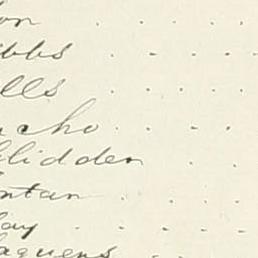 on
bbs
lls
acho
lidden
ntan
ay
aquens